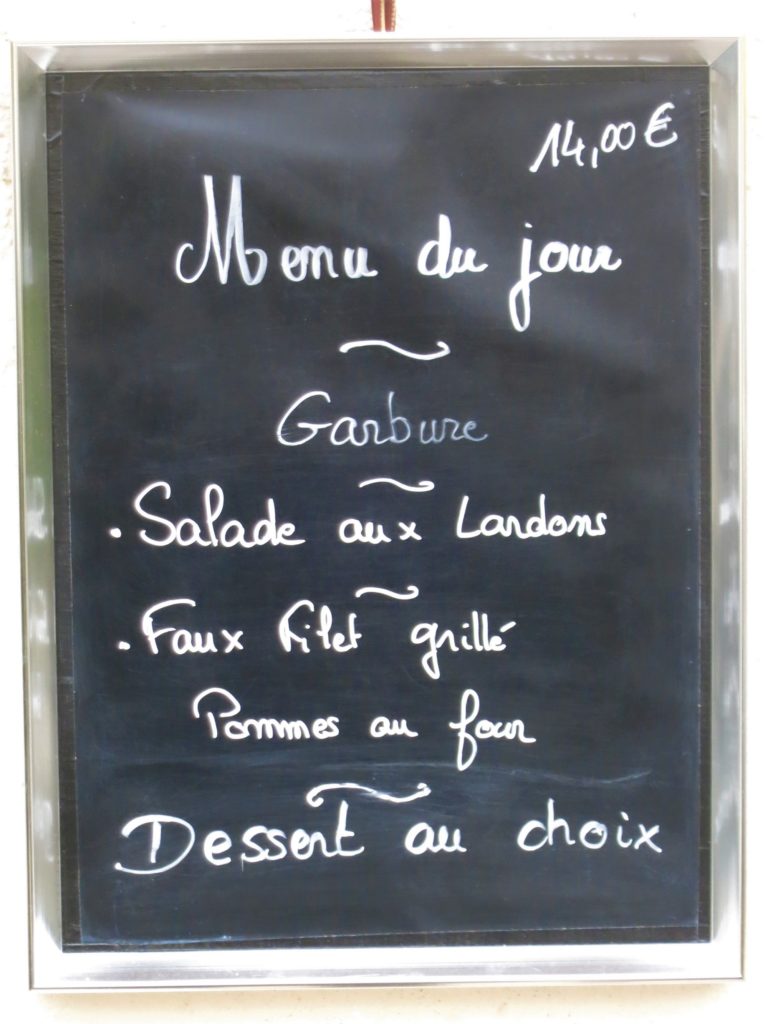 14,00€
Menu du jour
Garbure
. Salade aux Lardons
. Faux Filet grillé
Pommes au four
Dessert au choix